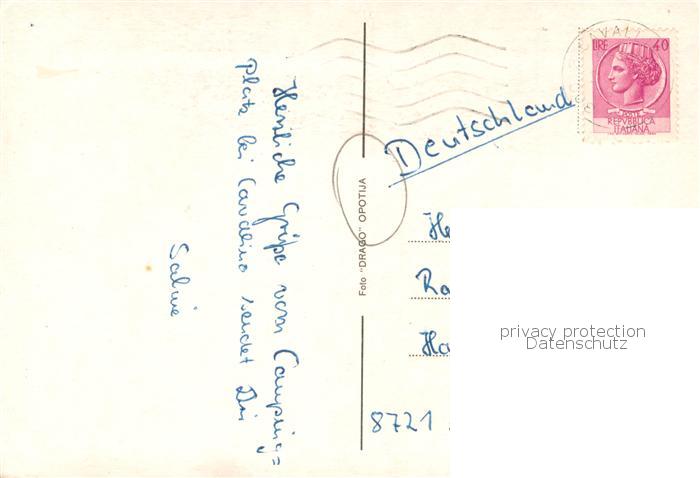 Herzliche Grüße vom Camping=
platz bei Cavallino sendet Dir
Sabine
Foto "DRAGO" OPOTIJA
LIRE 40
POSTE
REPVBBLICA
ITALIANA
CAVALL
Deutschland
He
Ro
Ha
8721
privacy protection
Datenschutz